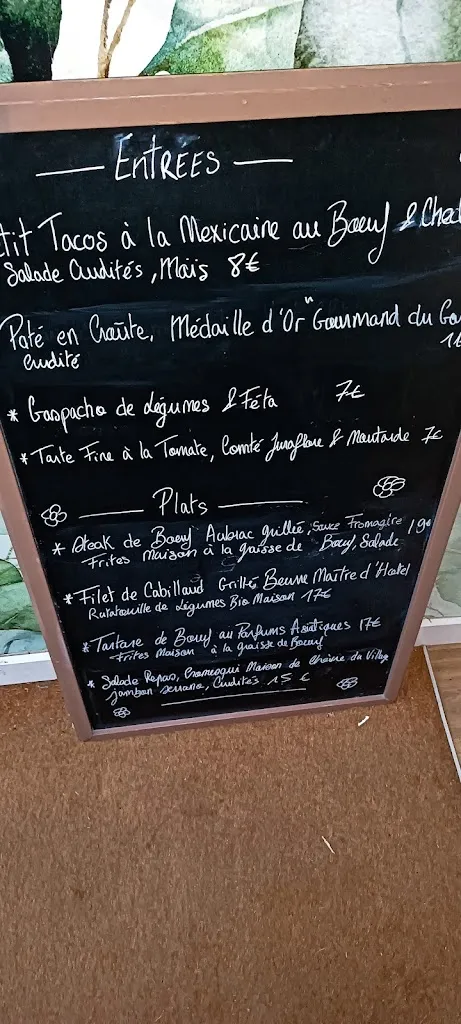 ENTREES
tit Tacos à la Mexicaine au Boeuf & Ched
Salade Crudités, Maïs 8€
Paté en Croûte, Médaille d'Or "Gourmand du Go
Crudité
* Gaspacho de Légumes & Féta 7€
* Tarte Fine à la Tomate, Comté Juraflore & Moutarde 7€
Plats
* Steak de Boeuf Aubrac grillée, Sauce Fromagère 19€
Frites Maison à la graisse de Boeuf, Salade
* Filet de Cabillaud Grillé Beurre Maître d'Hotel
Ratatouille de Légumes Bio Maison 17€
* Tartare de Boeuf au Parfums Asiatiques 17€
Frites Maison à la graisse de Boeuf
* Salade Repas, Cromesqui Maison de Chèvre du Village
jambon serrano, Crudités 15 €